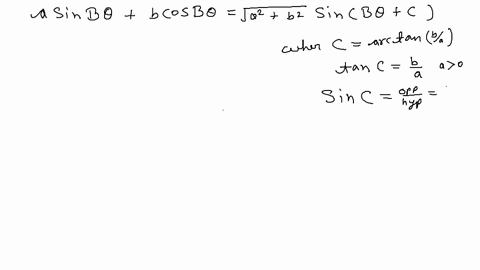 a Sin Bθ + b cos Bθ = √a² + b² Sin (Bθ + C)
when C = arctan (b/a)
tan C = b/a a>0
Sin C = opp/hyp =